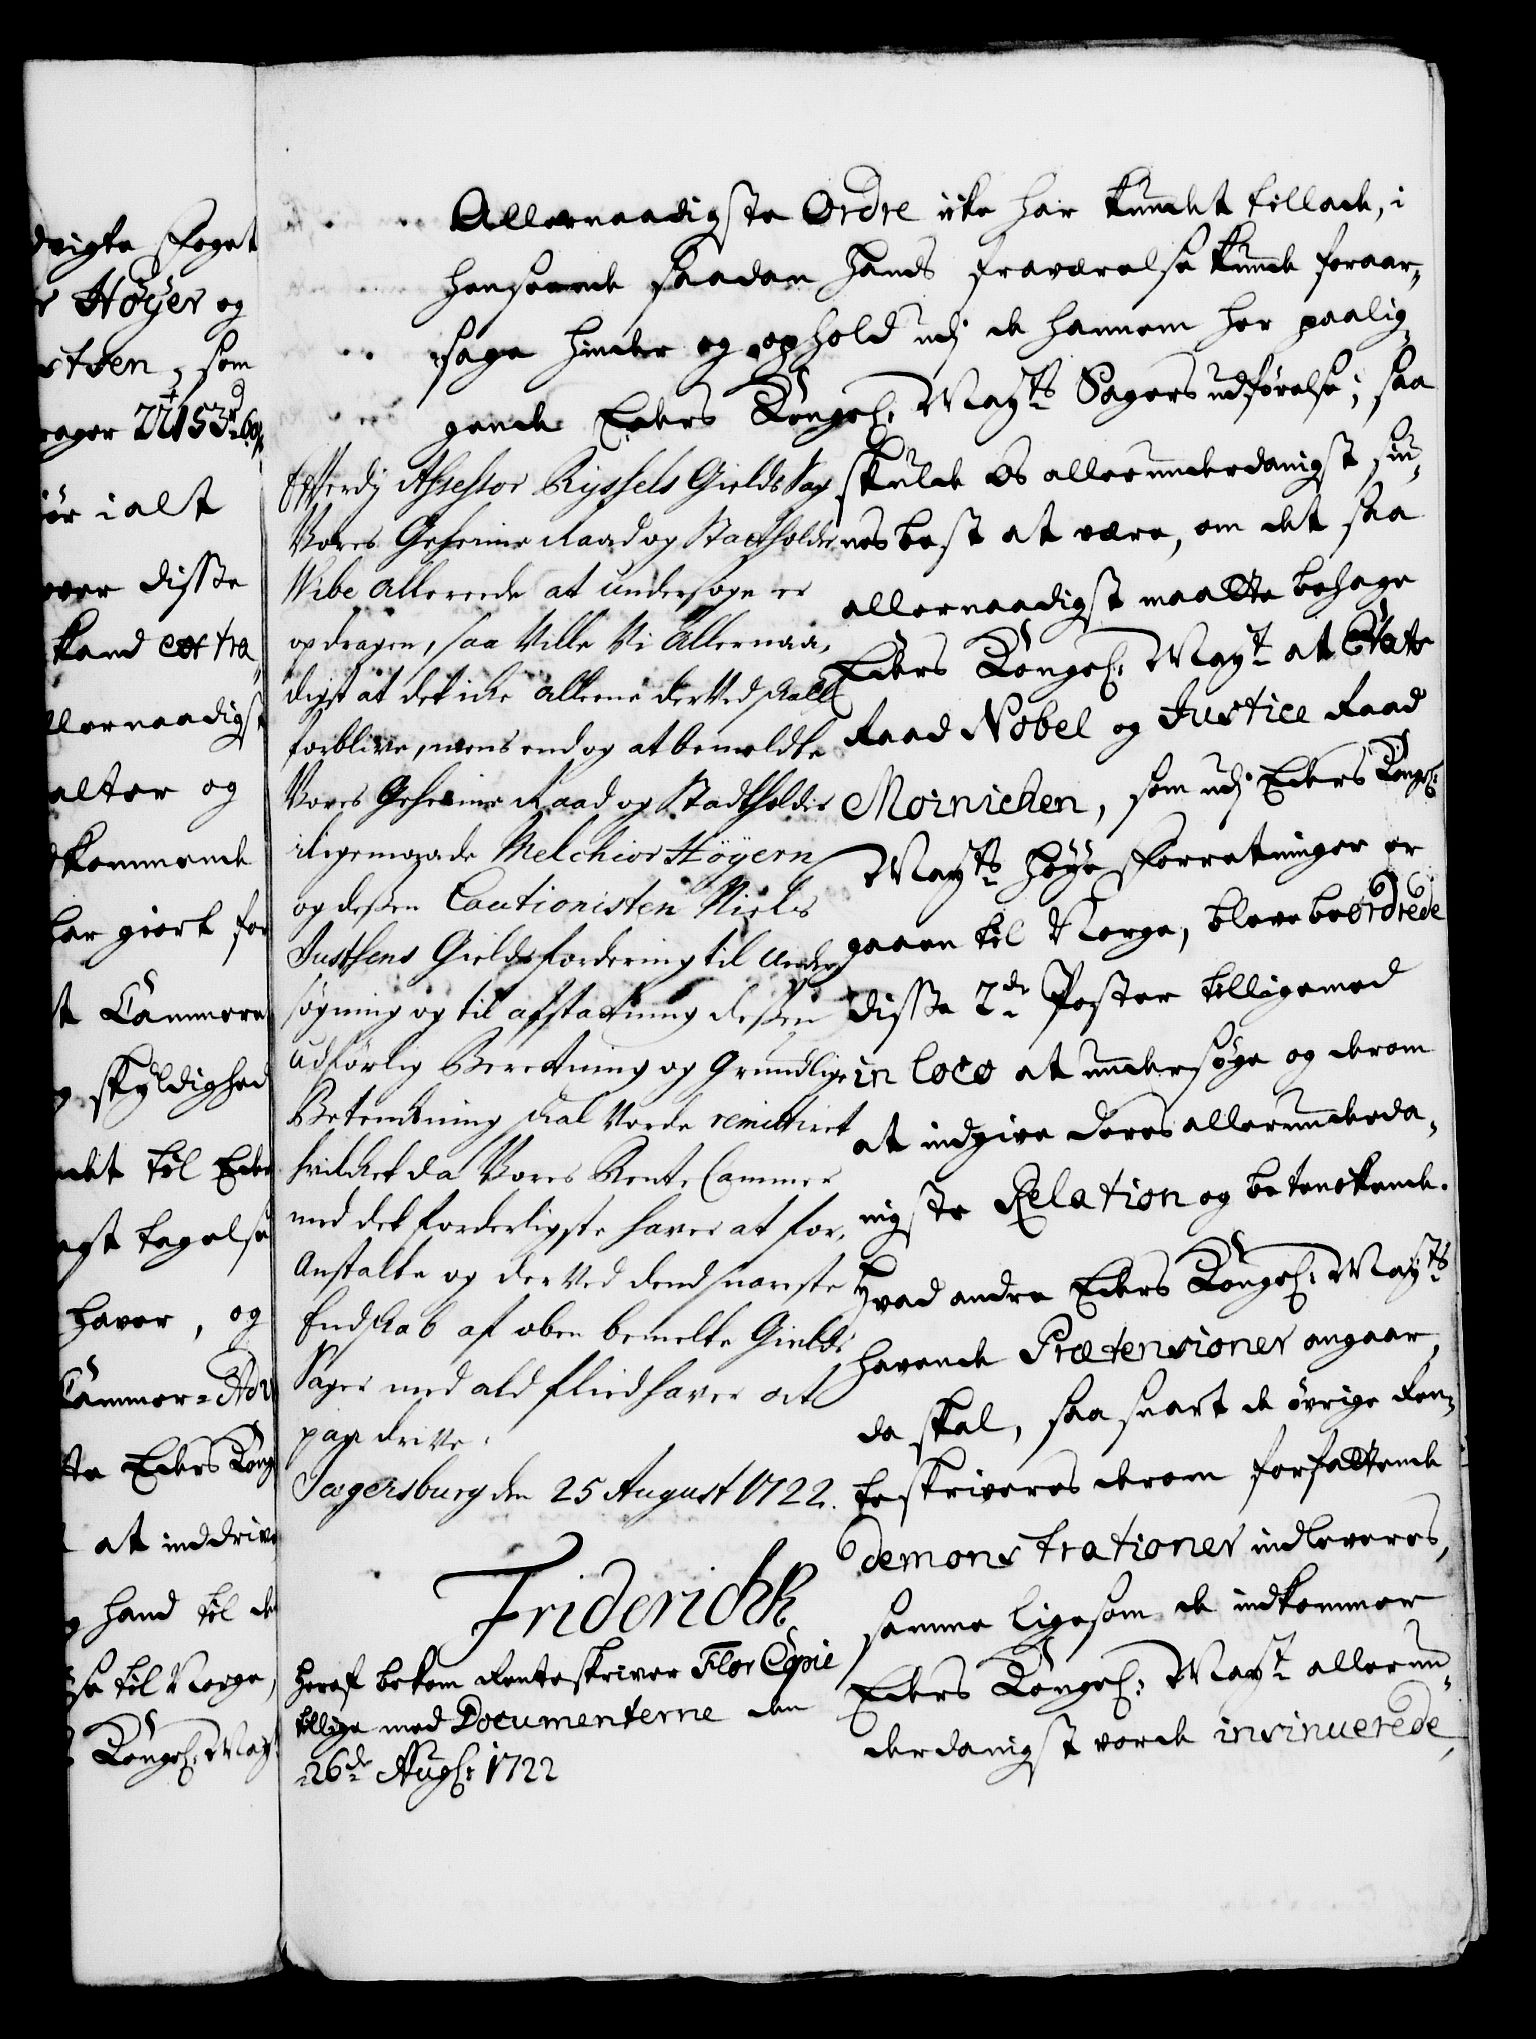 dvigte Foget
r Höyer og
rtsen, som
rager 22153rd 60
ör i alt
over disse
kand extra
llernaadigst
alter og
dkommende
har giort for
st Cammere
g skyldighed
ndet til Eder
egst tagelse
haver, og
Cammer-Adv
tte Eders Kong
at inddrive
g hand til de
se til Norge,
s Kongel: May
Allernaadigste Ordre icke har kundet tillade, i
henseende saadan hands fraværelse kunde foraar,
sage hinder og ophold udj de hannem her paalig,
gende Eders Kongel: Mayts Sagers udførelse; saa
skulde Os allerunderdanigst siu,
nes best at være, om det saa
allernaadigst maatte behage
Eders Kongel: Mayt at Etats
Raad Nobel og Justice Raad
Moinichen, som udj Eders Kongel:
Mayts höye Forretninger er
gaaen til Norge, bleve beordrede
disse 2de Poster tilligemed
in loco at undersøge og derom
at indgive deres allerunderda,
nigste Relation og betenckende.
Hvad andre Eders Kongel: Mayts
havende Prætensioner angaar,
da skal, saa snart de øvrige Ren,
teskriveres derom forfattende
demonstrationer indleveres,
samme ligesom de indkommer
Eders Kongel: Mayt allerun,
derdanigst vorde insinuerede,
Efterdj Assessor Ryssels Gields Sag
Vores Geheime Raad og Stadtholder
Wibe allereede at undersøge er
opdragen, saa Ville Vi Allernaa,
digst at det icke alleene derved skall
forblive, mens end og at bemeldte
Vores Geheime Raad og Stadtholder
iligemaade Melchior Höyern
og deßen Cautionisten Niels
Justsens Gields fordering til under
søgning og til afstattning deßen
udførlig Berettning og Grundlige
Betenckning skal vorde remitteret
hvilcket da Vores Rente Cammer
med det forderligste haver at for,
Anstalte og derved dend snareste
Endskab af oben bemelte Gields
Sager med ald fliid haver at
paa drive.
Jægersburg den 25 August 1722.
Friderich R
Heraf bekom Renteskriver Flor Copie
tillige med Documenterne den
26de Augl: 1722